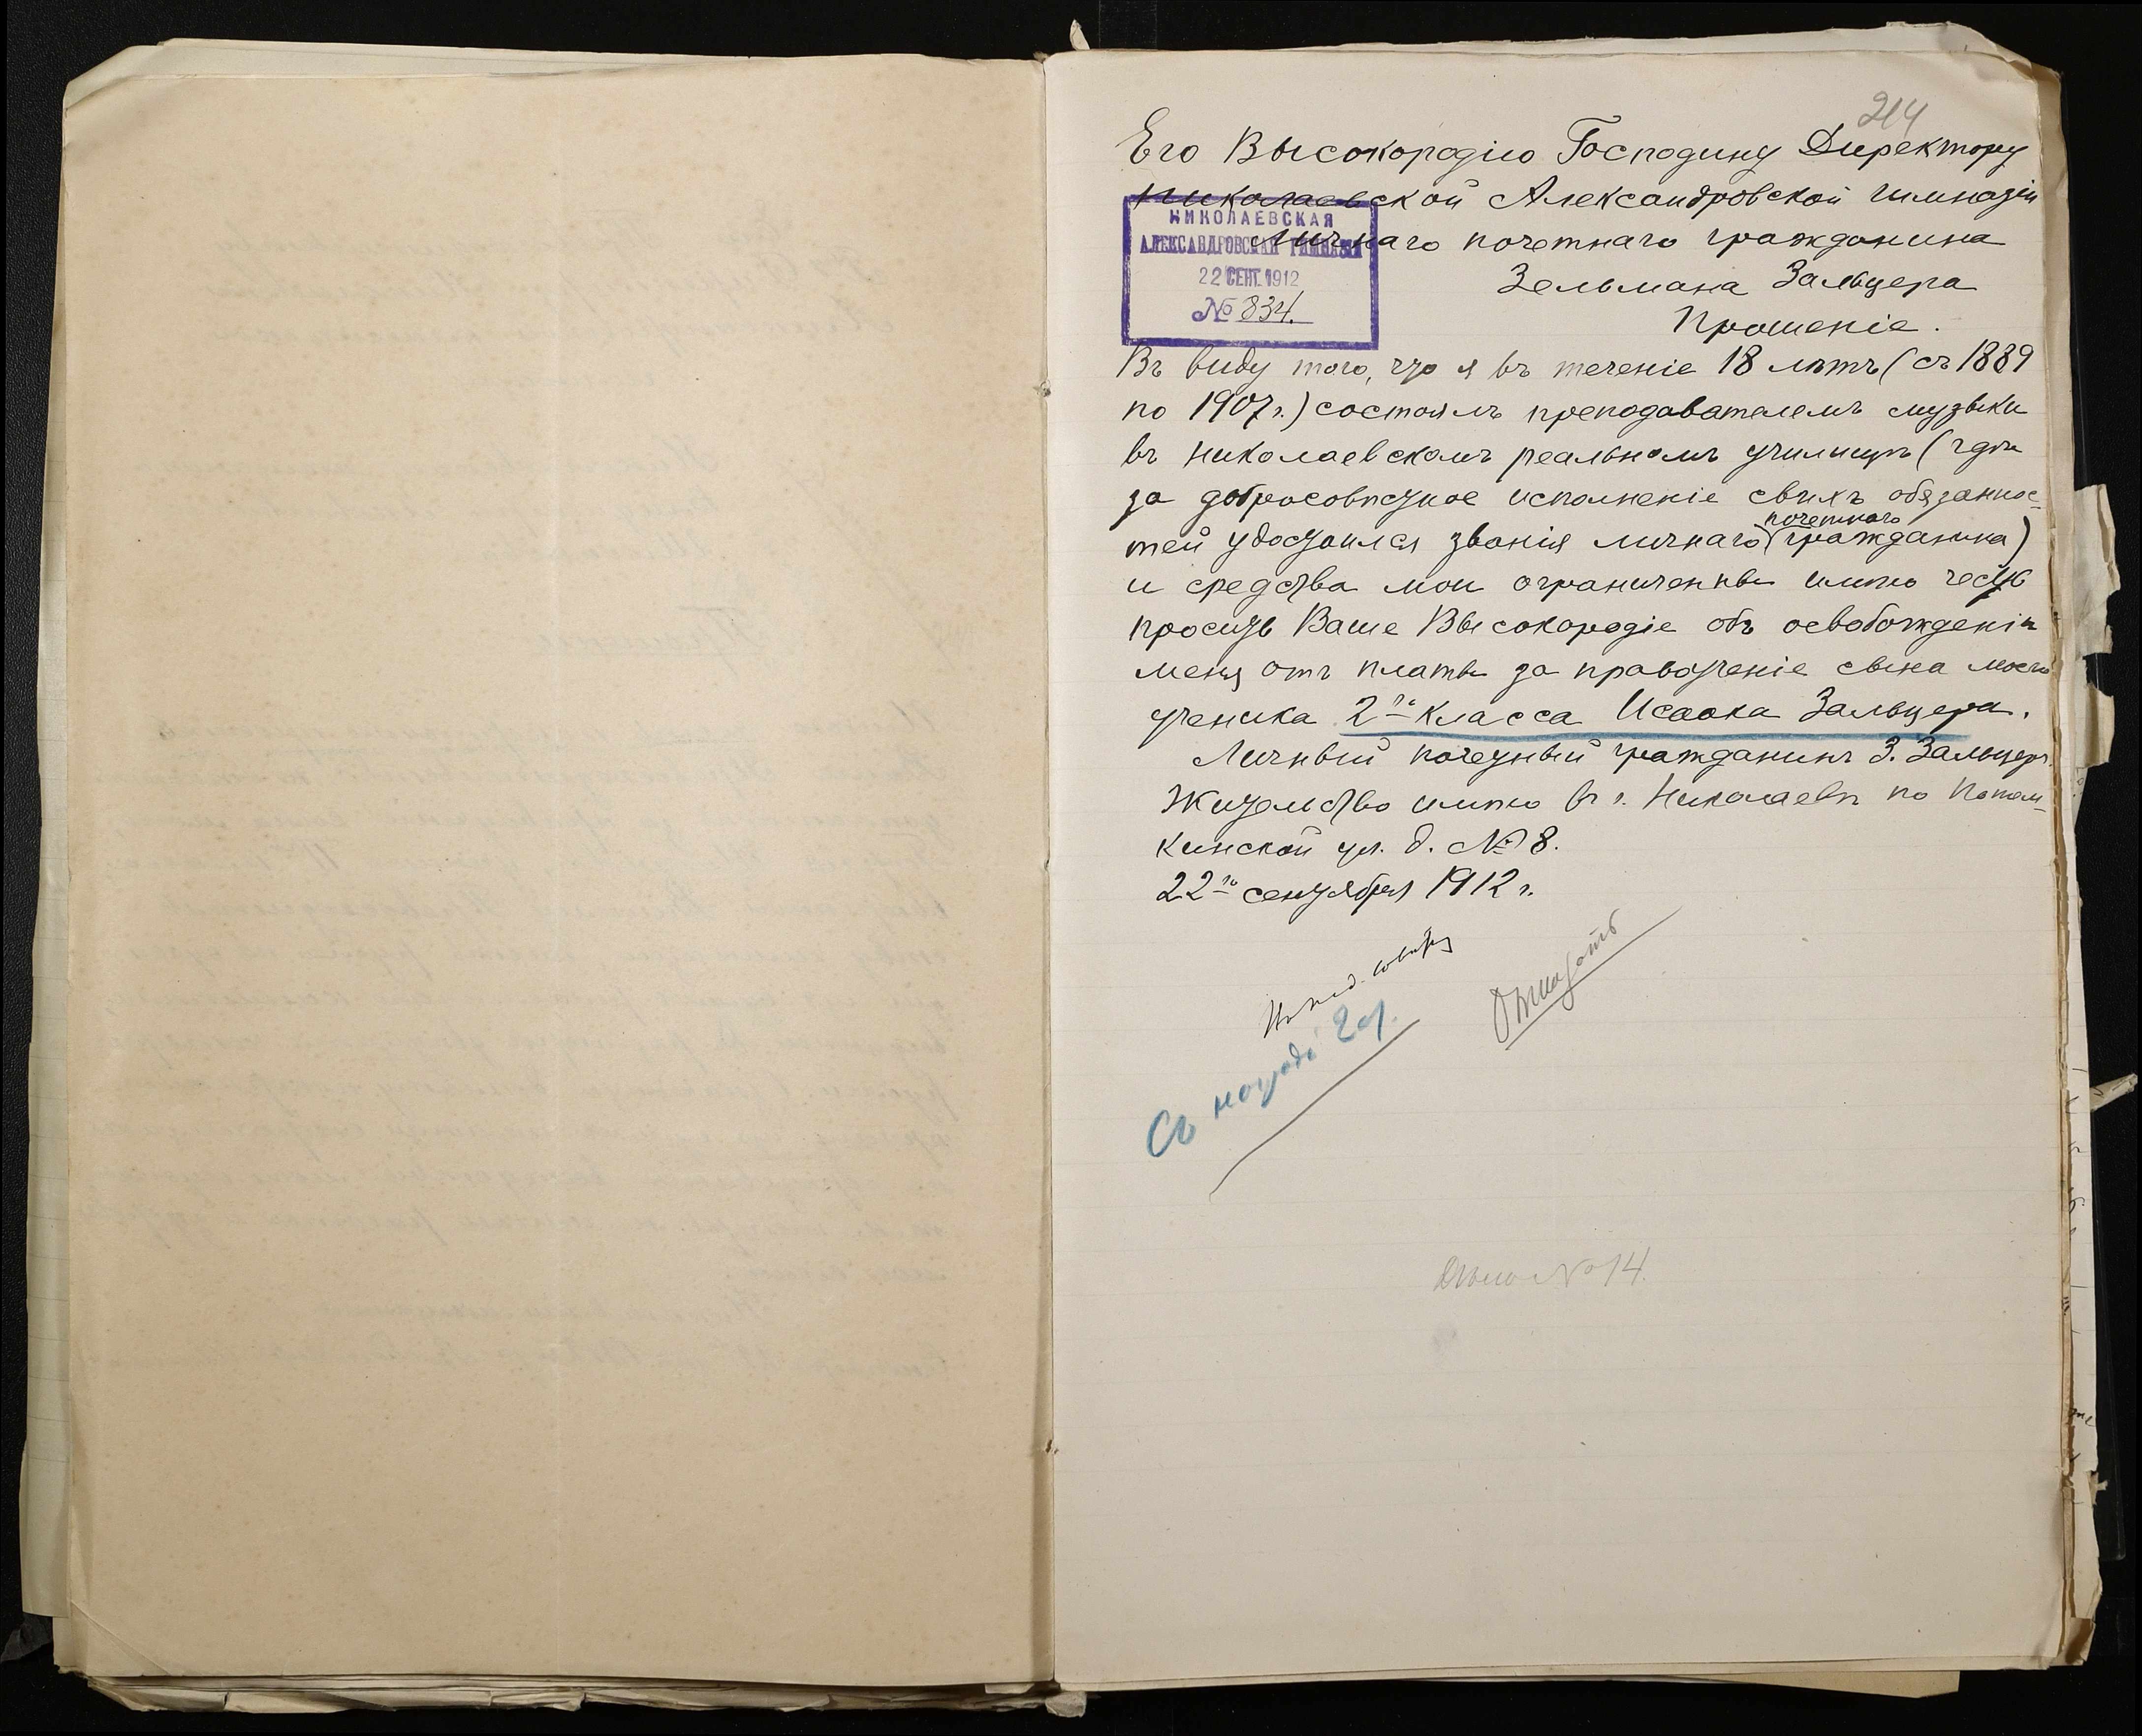 214
Его Высокородію Господину Директору
Николаевской Александровской гимназіи
НИКОЛАЕВСКАЯ
АЛЕКСАНДРОВСКАЯ ГИМНАЗІЯ
22 СЕНТ. 1912
№ 834.
Личнаго почетнаго гражданина
Зельмана Зальцера
Прошеніе.
Въ виду того, что я въ теченіе 18 лѣтъ (съ 1889
по 1907 г.) состоялъ преподавателемъ музыки
въ Николаевскомъ реальномъ училищѣ (гдѣ
за добросовѣстное исполненіе своихъ обязаннос-
почетнаго
тей удостоился званія личнаго гражданина)
и средства мои ограничены имѣю честь
просить Ваше Высокородіе объ освобожденіи
меня отъ платы за правоученіе сына моего
ученика 2го класса Исаака Зальцера.
Личный почетный гражданинъ З. Зальцеръ.
Жительство имѣю въ г. Николаевѣ по Потем-
кинской ул. д. № 8.
22го сентября 1912 г.
пед. совѣтъ
Отказать
Дѣло № 14.